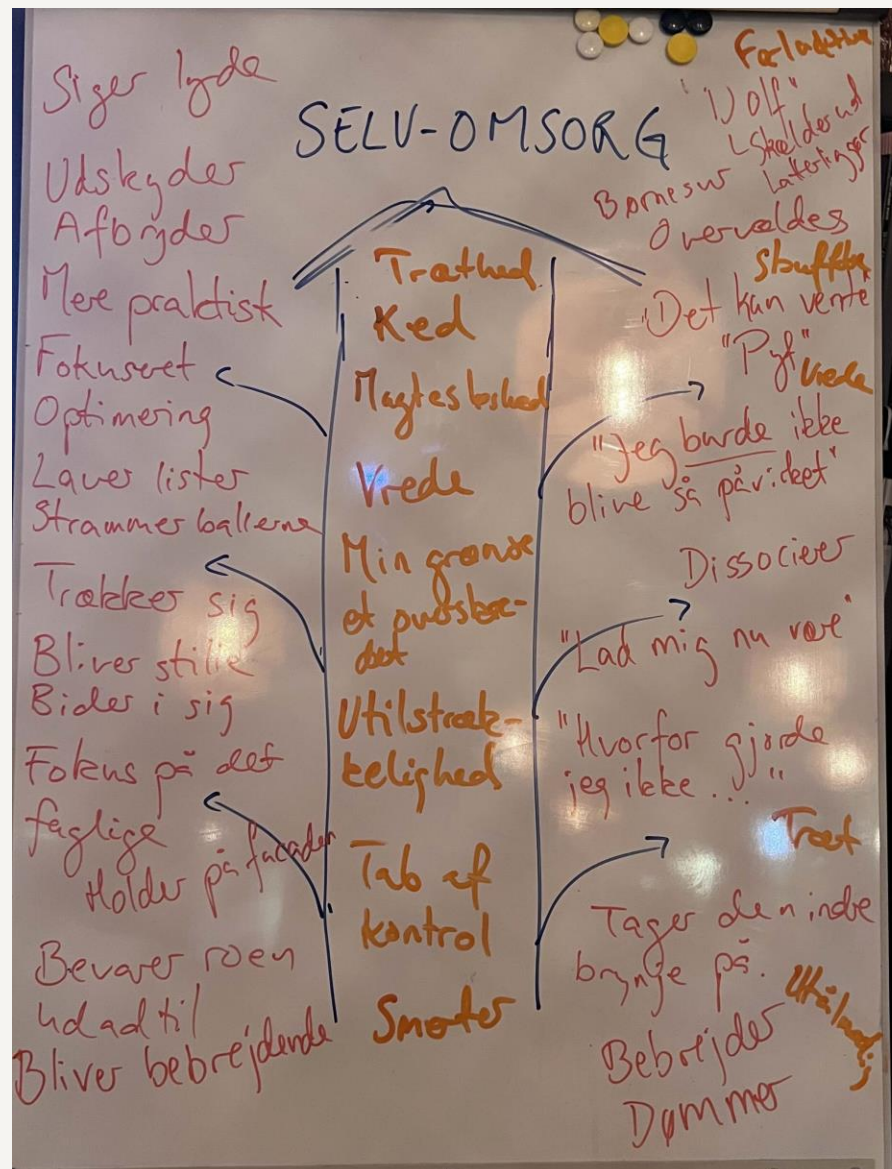 SELV-OMSORG
Siger lyde
Udskyder
Afbryder
Mere praktisk
Fokuseret
Optimering
Laver lister
Strammer ballerne
Trækker sig
Bliver stille
Bider i sig
Fokus på det
faglige
Holder på facaden
Bevarer roen
udadtil
Bliver bebrejdende
Træthed
Ked
Magtesløshed
Vrede
Min grænse
et
Utilstræk-
kelighed
Tab af
kontrol
Smerter
"Ulf"
Skælder ud
Børnesur
Overvældes
"Det kan vente"
"Pyt"
Vrede
"Jeg burde ikke
blive så påvirket"
Dissocierer
"Lad mig nu være"
"Hvorfor gjorde
jeg ikke..."
Træt
Tager den indre
brynje på.
Utålmodig
Bebrejder
Dømmer